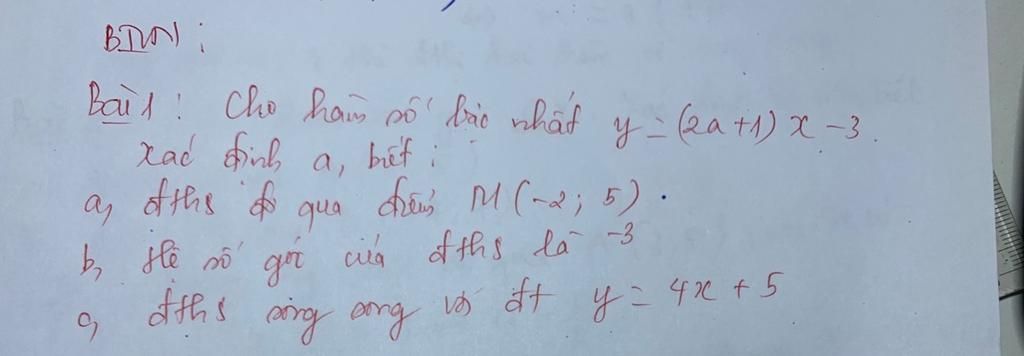 BTVN :
Bài 1 : Cho hàm số bậc nhất y = (2a+1) x - 3.
xác định a, biết :
a, đths đi qua điểm M (-2; 5) .
b, Hệ số góc của đths là -3
c, đths song song với đt y = 4x + 5